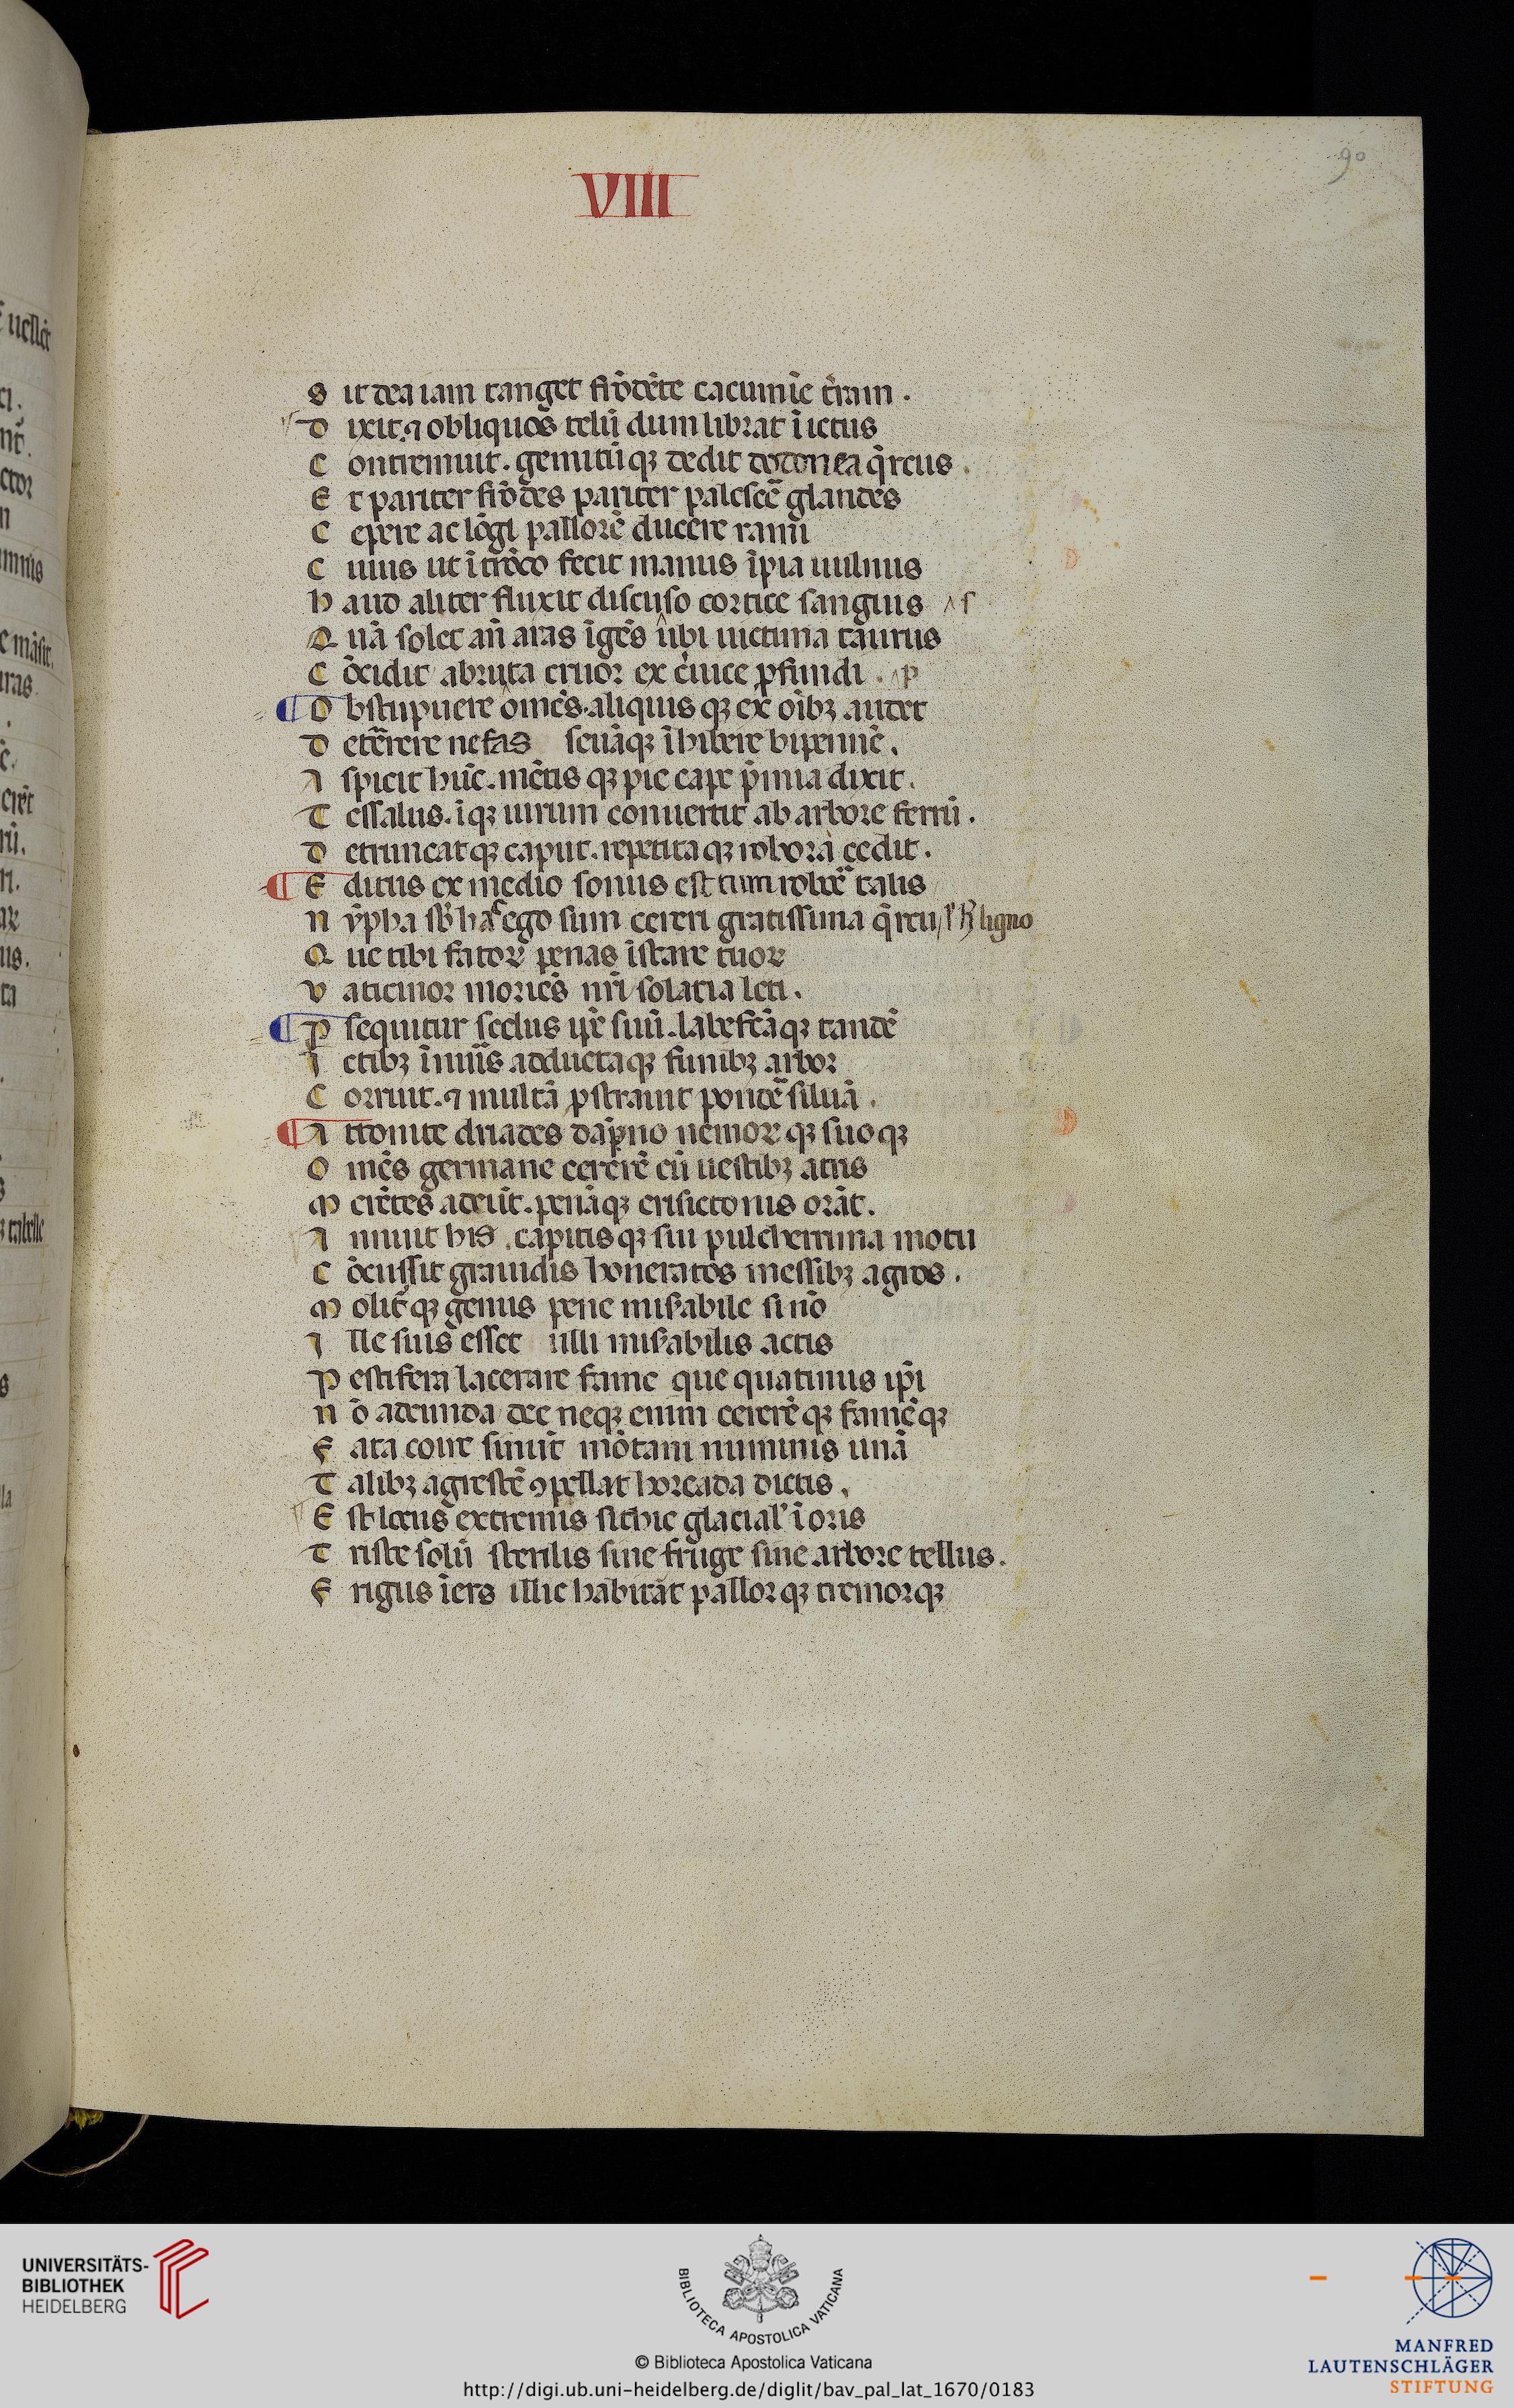 90
VIII
S it dea iam tanget frõdẽte cacumĩe t̃ram .
D ixit. ⁊ obliquos telũ dum librat ĩ ictus
C ontremuit . gemitũqꝫ dedit dodonea q̃rcus .
E t pariter frõdes pariter palescẽ glandes
C epere ac lõgi pallorẽ ducere rami
C uius ut ĩ trõco fecit manus ĩpia uulnus
h aud aliter fluxit discuso cortice sanguis ^ s
Q uã solet añ aras ĩgẽs ubi uictima taurus
C õcidit abruta cruor ex ceruice ꝓfundi . ^ p
O bstupuere omẽs. aliquis qꝫ ex oĩbꝫ audet
D etẽrere nefas seuãqꝫ ĩhibere bipennẽ .
A spicit hũc . mẽtis qꝫ pie cape p̃mia dixit .
T essalus . ĩqꝫ uirum conuertit ab arbore ferrũ .
D etruncat qꝫ caput . repetita qꝫ robora cedit .
E ditus ex medio sonus est tum robẽ talis
N ỹpha sb̃ hac ego sum cereri gratissima q̃rcu / l' h̃ ligno
Q ue tibi fatoꝝ penas ĩstare tuoꝝ
V aticinor moriẽs nr̃i solatia leti .
P sequitur scelus ip̃e suũ . labefcãqꝫ tandẽ
I ctibꝫ ĩnũis adductaqꝫ funibꝫ arbor
C orruit . ⁊ multã ꝓstrauit pondẽ siluã .
A ttonite driades dãpno nemoꝝ qꝫ suoqꝫ
O mẽs germane cererẽ cũ uestibꝫ atris
M erẽtes adeũt . penãqꝫ erisictonis orãt .
A nnuit his . capitis qꝫ sui pulcherrima motu
C õcussit grauidis honeratos messibꝫ agros .
M olit̃ qꝫ genus pene mis̃abile si nõ
I lle suis esset ulli mis̃abilis actis
P estifera lacerare fame que quatinus ip̃i
N õ adeunda dee neqꝫ enim cererẽ qꝫ famẽ qꝫ
F ata coire sinũt mõtani numinis unã
T alibꝫ agrestẽ ꝯpellat horeada dictis .
E st locus extremis sithie glacial' ĩ oris
T riste solũ sterilis sine fruge sine arbore tellus .
F rigus ĩers illic habitãt pallor qꝫ tremorqꝫ
UNIVERSITÄTS-
BIBLIOTHEK
HEIDELBERG
BIBLIOTECA APOSTOLICA VATICANA
© Biblioteca Apostolica Vaticana
http://digi.ub.uni-heidelberg.de/diglit/bav_pal_lat_1670/0183
MANFRED
LAUTENSCHLÄGER
STIFTUNG